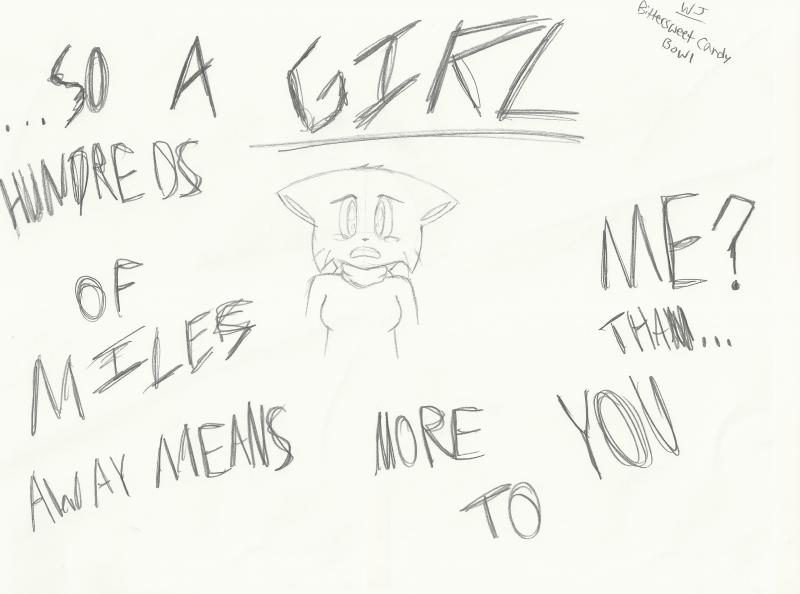 WJ
Bittersweet Candy
Bowl
...SO A GIRL
HUNDREDS
OF
MILES
AWAY MEANS MORE
TO
YOU
THAN...
ME?